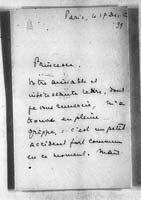 Paris, le 19 Déc.
99
Princesse,
Votre aimable et
intéressante lettre, dont
je vous remercie, m'a
trouvé en pleine
grippe ; c'est un petit
accident fort commun
en ce moment. Mais